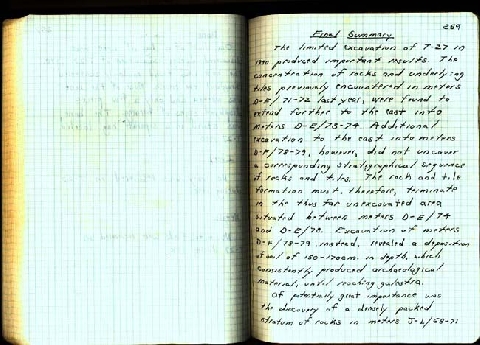 259
Final Summary
The limited excavation of T-27 in
1990 produced important results. The
concentration of rocks and underlying
tiles previously encountered in meters
D-E/71-72 last year, were found to
extend further to the east into
meters D-E/73-74. Additional
excavation to the east into meters
D-F/78-79, however, did not uncover
a corresponding stratigraphical sequence
of rocks and tile. The rock and tile
formation must, therefore, terminate
in the thus far unexcavated area
situated between meters D-E/74
and D-E/78. Excavation of meters
D-F/78-79 instead, revealed a deposition
of soil of 150-170cm. in depth, which
consistently produced archaeological
material, until reaching galestra.
Of potentially great importance was
the discovery of a densely packed
stratum of rocks in meters